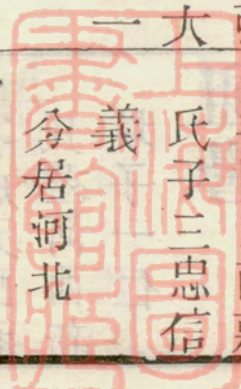 大
氏子三忠信
一
義
分居河北